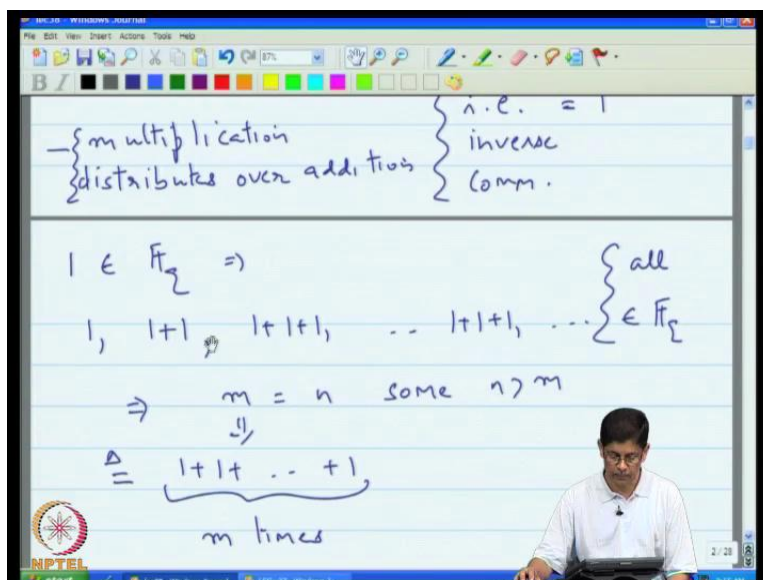 Lec38 - Windows Journal
File Edit View Insert Actions Tools Help
87%
B I
i.e. = 1
{ multiplication
distributes over addition
inverse
comm.
1 ∈ 𝔽_q ⇒
1, 1+1, 1+1+1, .. 1+1+1, ...
{ all
∈ 𝔽_q
⇒ m = n some n > m
≜ 1+1+ .. +1
m times
NPTEL
2 / 28
start